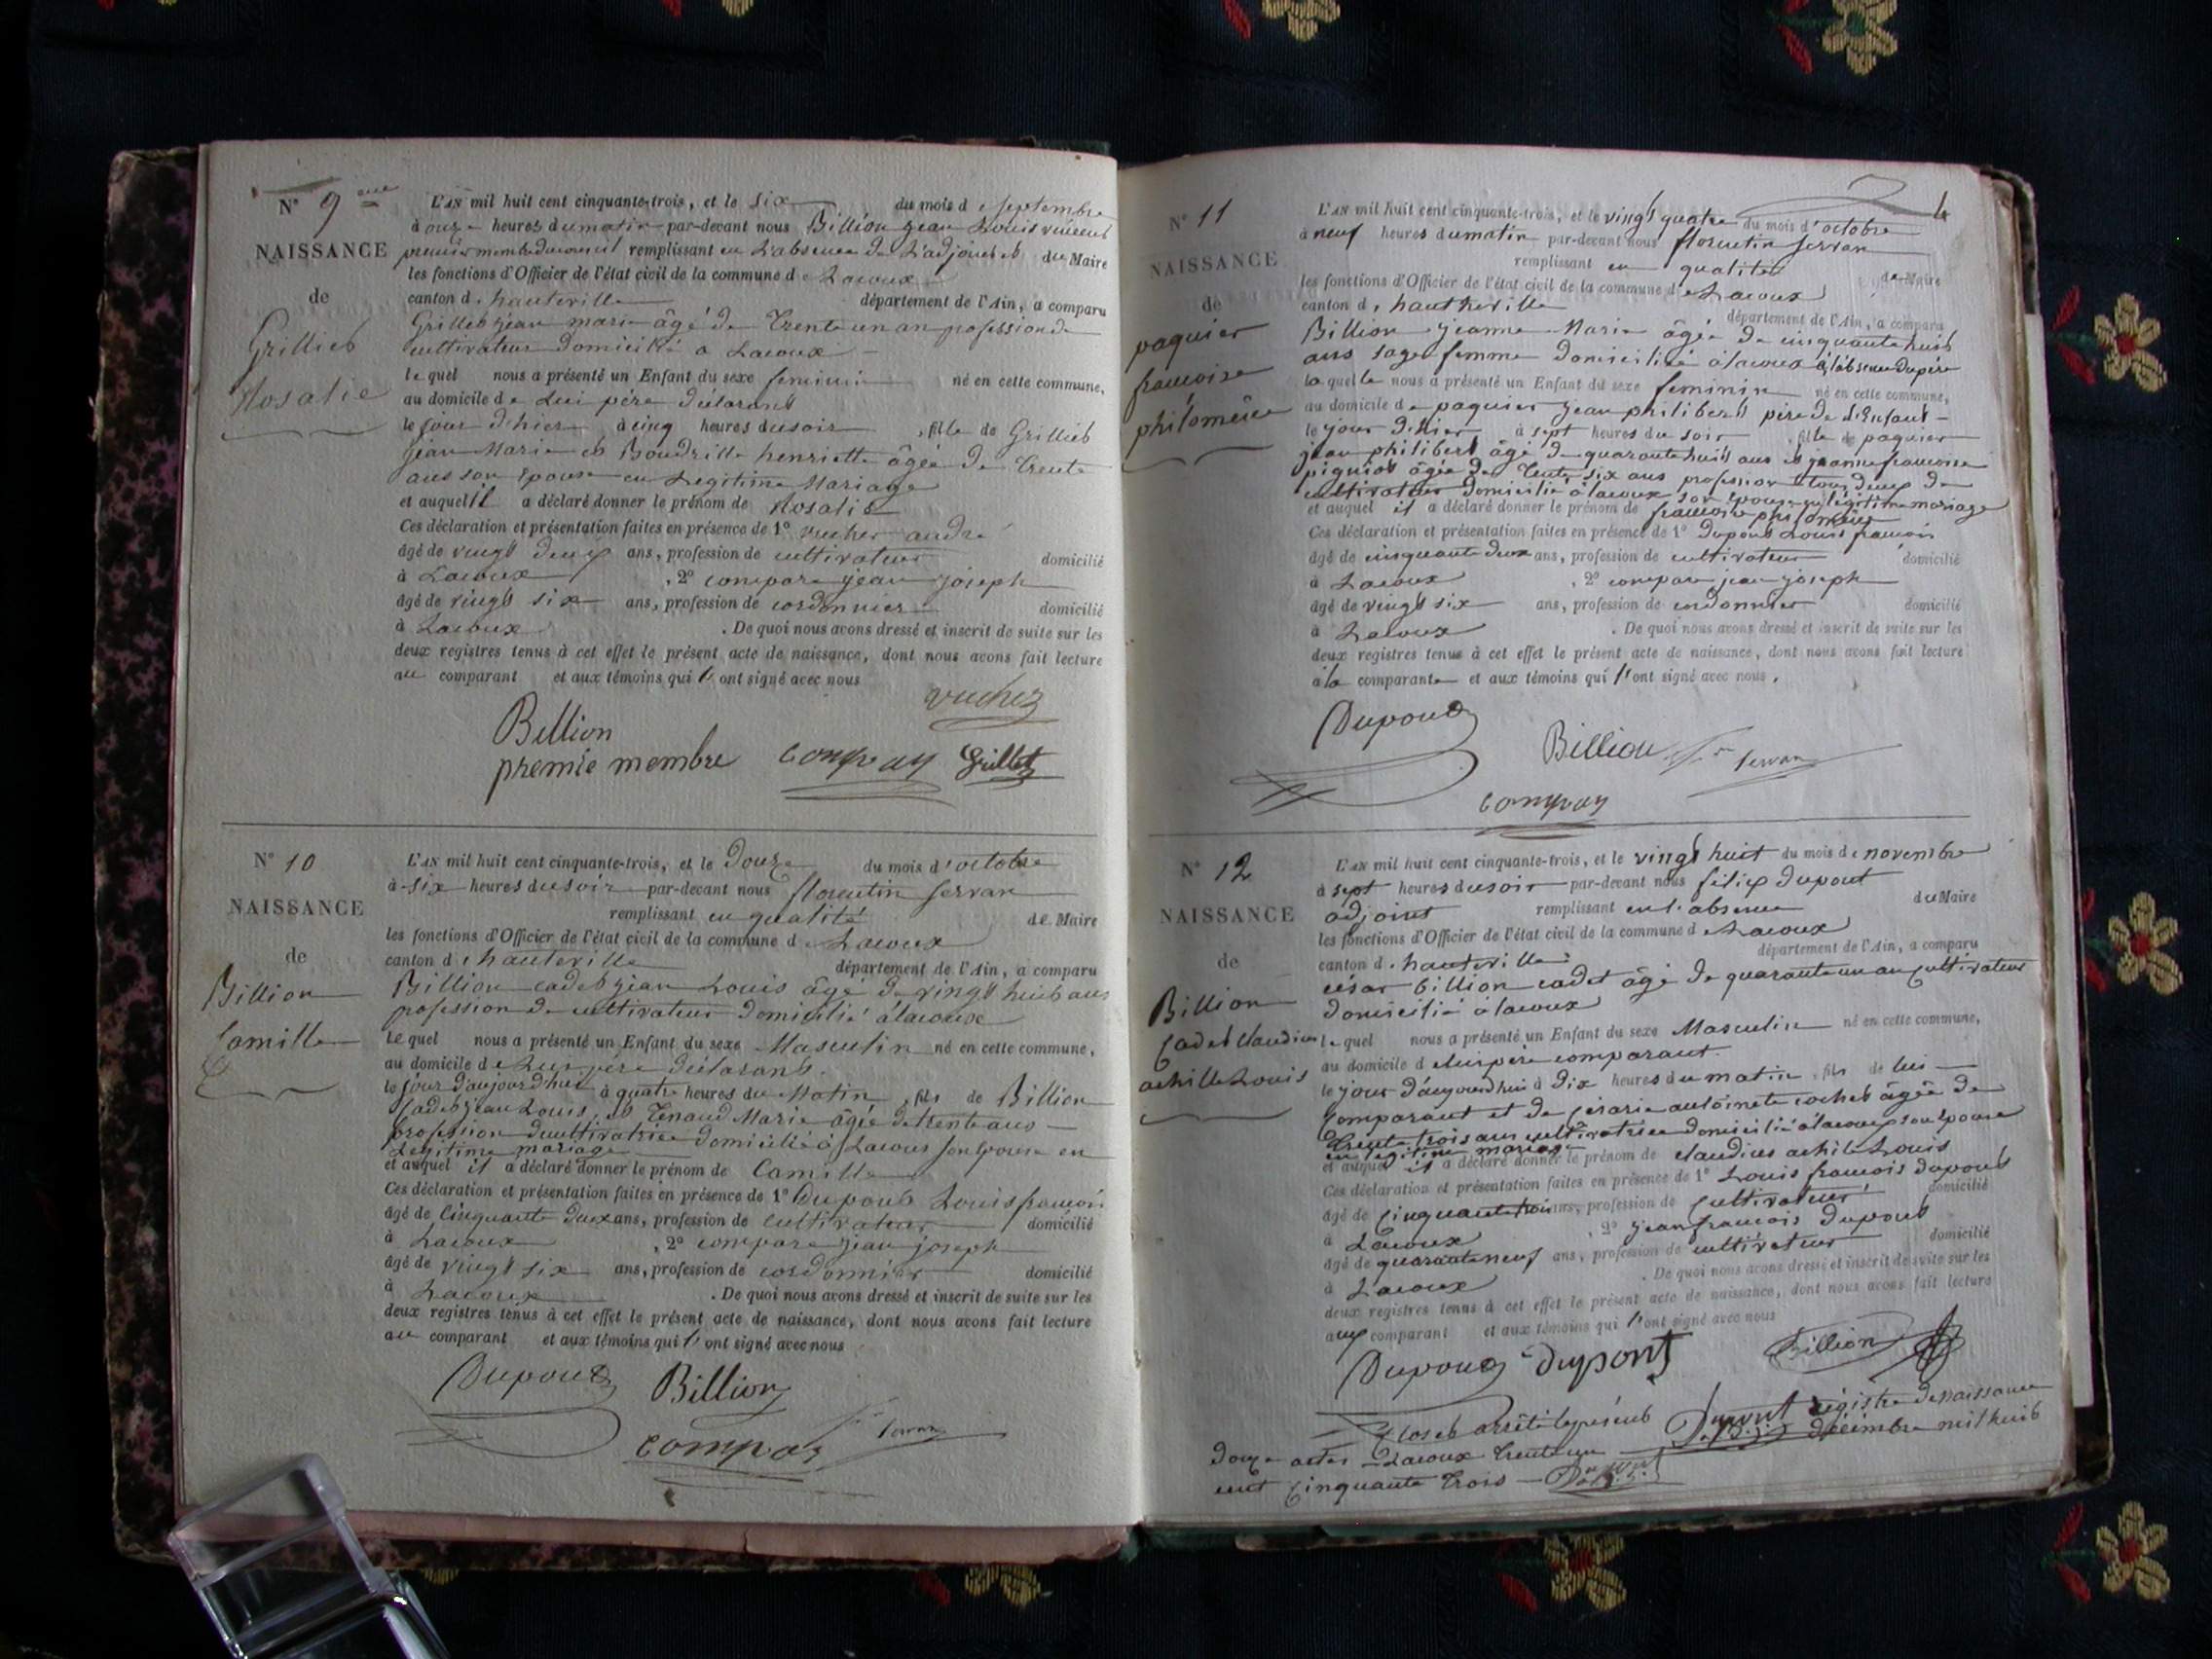 N° 9
NAISSANCE
de
Grillieb
Rosalie
L'AN mil huit cent cinquante-trois, et le six du mois d septembre
à onze heures du matin par-devant nous Billion jean Louis vincent
premier membre du conseil remplissant en L'absence de L'adjoint et du Maire
les fonctions d'Officier de l'état civil de la commune d e Lacoux
canton d, hauteville département de l'Ain, a comparu
Grilleb jean marie âgé de Trente un an profession de
cultivateur domicilié a Lacoux
le quel nous a présenté un Enfant du sexe feminin né en cette commune,
au domicile de Lui père déclarant
le jour d'hier à cinq heures du soir , fille de Grillieb
jean Marie et Boudrille henriette âgée de Trente
ans son Epouse en Legitime Mariage
et auquel il a déclaré donner le prénom de Rosalie
Ces déclaration et présentation faites en présence de 1° vucher andré
âgé de vingt deux ans, profession de cultivateur domicilié
à Lacoux , 2° compare jean joseph
âgé de vingt six ans, profession de cordonnier domicilié
à Lacoux . De quoi nous avons dressé et inscrit de suite sur les
deux registres tenus à cet effet le présent acte de naissance, dont nous avons fait lecture
au comparant et aux témoins qui l'ont signé avec nous
vuchez
Billion
premie membre compay Grillet
N° 10
NAISSANCE
de
Billion
Camille
L'AN mil huit cent cinquante-trois, et le Douze du mois d'octobre
à six heures du soir par-devant nous florentin servan
remplissant en qualité de Maire
les fonctions d'Officier de l'état civil de la commune d e Lacoux
canton d, hauteville département de l'Ain, a comparu
Billion cadet jean Louis âgé de vingt huit ans
profession de cultivateur domicilié à lacoux
Le quel nous a présenté un Enfant du sexe Masculin né en cette commune,
au domicile de Lui père déclarant.
le jour d'aujourd'hui à quatre heures du Matin , fils de Billion
Cadet jean Louis, et Tenaud Marie âgée de trente ans
profession de cultivatrice domicilié à Lacoux son épouse en
Légitime mariage
et auquel il a déclaré donner le prénom de Camille
Ces déclaration et présentation faites en présence de 1° Dupont Louis françois
âgé de Cinquante deux ans, profession de cultivateur domicilié
à Lacoux , 2° compare jean joseph
âgé de vingt six ans, profession de cordonnier domicilié
à Lacoux . De quoi nous avons dressé et inscrit de suite sur les
deux registres tenus à cet effet le présent acte de naissance, dont nous avons fait lecture
au comparant et aux témoins qui l'ont signé avec nous
Dupont Billion
compay servan
4
N° 11
NAISSANCE
de
paquier
francoise
philomène
L'AN mil huit cent cinquante-trois, et le vingt quatre du mois d'octobre
à neuf heures du matin par-devant nous florentin servan
remplissant en qualité de Maire
les fonctions d'Officier de l'état civil de la commune d e Lacoux
canton d, hautheville département de l'Ain, a comparu
Billion jeanne Marie âgée de cinquante huit
ans sage femme domiciliée à lacoux à l'absence du père
la quelle nous a présenté un Enfant du sexe feminin né en cette commune,
au domicile de paquier jean philibert père de l'Enfant
le jour d'Hier à sept heures du soir , fille de paquier
jean philibert âgé de quarante huit ans et jeanne francoise
piguiot âgée de Trente six ans profession tous deux de
cultivateur domicilié à lacoux son épouse en légitime mariage
et auquel il a déclaré donner le prénom de francoise philomène
Ces déclaration et présentation faites en présence de 1° Dupont Louis françois
âgé de cinquante deux ans, profession de cultivateur domicilié
à Lacoux , 2° compare jean joseph
âgé de vingt six ans, profession de cordonnier domicilié
à Lacoux . De quoi nous avons dressé et inscrit de suite sur les
deux registres tenus à cet effet le présent acte de naissance, dont nous avons fait lecture
à la comparante et aux témoins qui l'ont signé avec nous.
Dupont
Billion servan
compay
N° 12
NAISSANCE
de
Billion
Cadet Claudius
achille Louis
L'AN mil huit cent cinquante-trois, et le vingt huit du mois de novembre
à sept heures du soir par-devant nous félix dupont
adjoint remplissant en l'absence du Maire
les fonctions d'Officier de l'état civil de la commune d e Lacoux
canton d, hauteville département de l'Ain, a comparu
césar billion cadet âgé de quarante un an cultivateur
domicilié à lacoux
le quel nous a présenté un Enfant du sexe Masculin né en cette commune,
au domicile de lui père comparant.
le jour d'aujourd'hui à Dix heures du matin , fils de lui
Comparant et de antoinete cochet âgée de
Trente trois ans cultivatrice domicilié à lacoux son épouse
en légitime mariage
et auquel il a déclaré donner le prénom de claudius achile Louis
Ces déclaration et présentation faites en présence de 1° Louis francois dupont
âgé de Cinquante trois ans, profession de cultivateur domicilié
à Lacoux , 2° jean francois Dupont
âgé de quarante neuf ans, profession de cultivateur domicilié
à Lacoux . De quoi nous avons dressé et inscrit de suite sur les
deux registres tenus à cet effet le présent acte de naissance, dont nous avons fait lecture
aux comparant et aux témoins qui l'ont signé avec nous
Dupont dupont Billion
Clos et arrêté le présent Dupont régistre de Naissance
Douze actes Lacoux Trente un décembre mil huit
cent Cinquante Trois